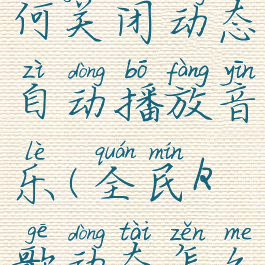 何关闭动态
zì dòng bō fàng yīn
自动播放音
lè quán mín
乐(全民K
gē dòng tài zěn me
歌动态怎么